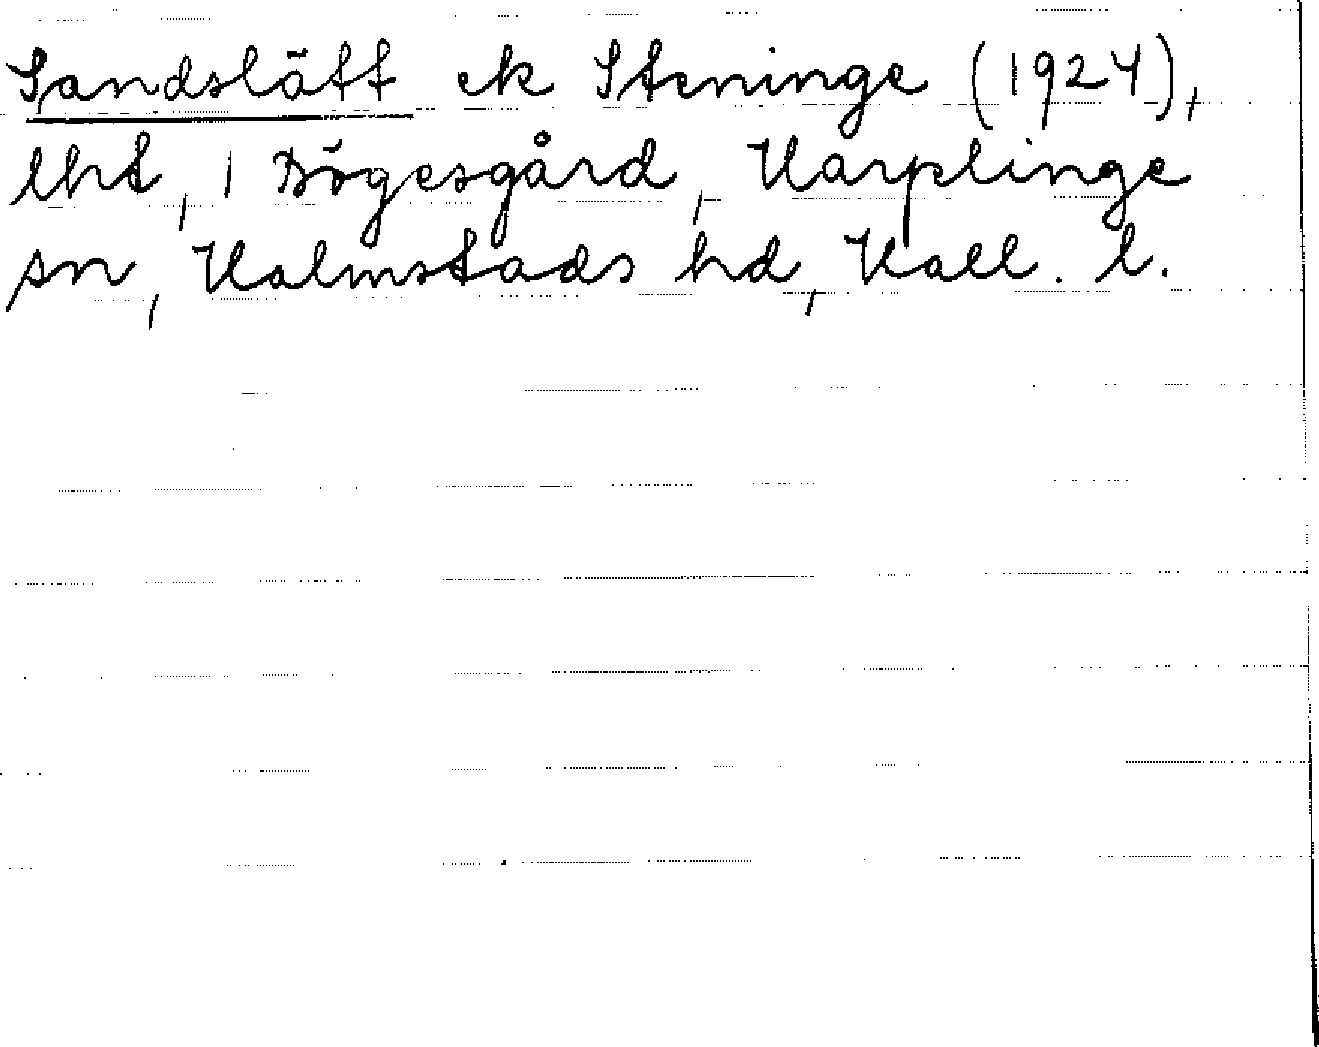 Sandslätt ek Steninge (1924),
lht, 1 Bögesgård, Harplinge
sn, Halmstads hd, Hall. l.